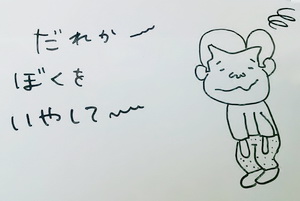 だれか〜
ぼくを
いやして〜